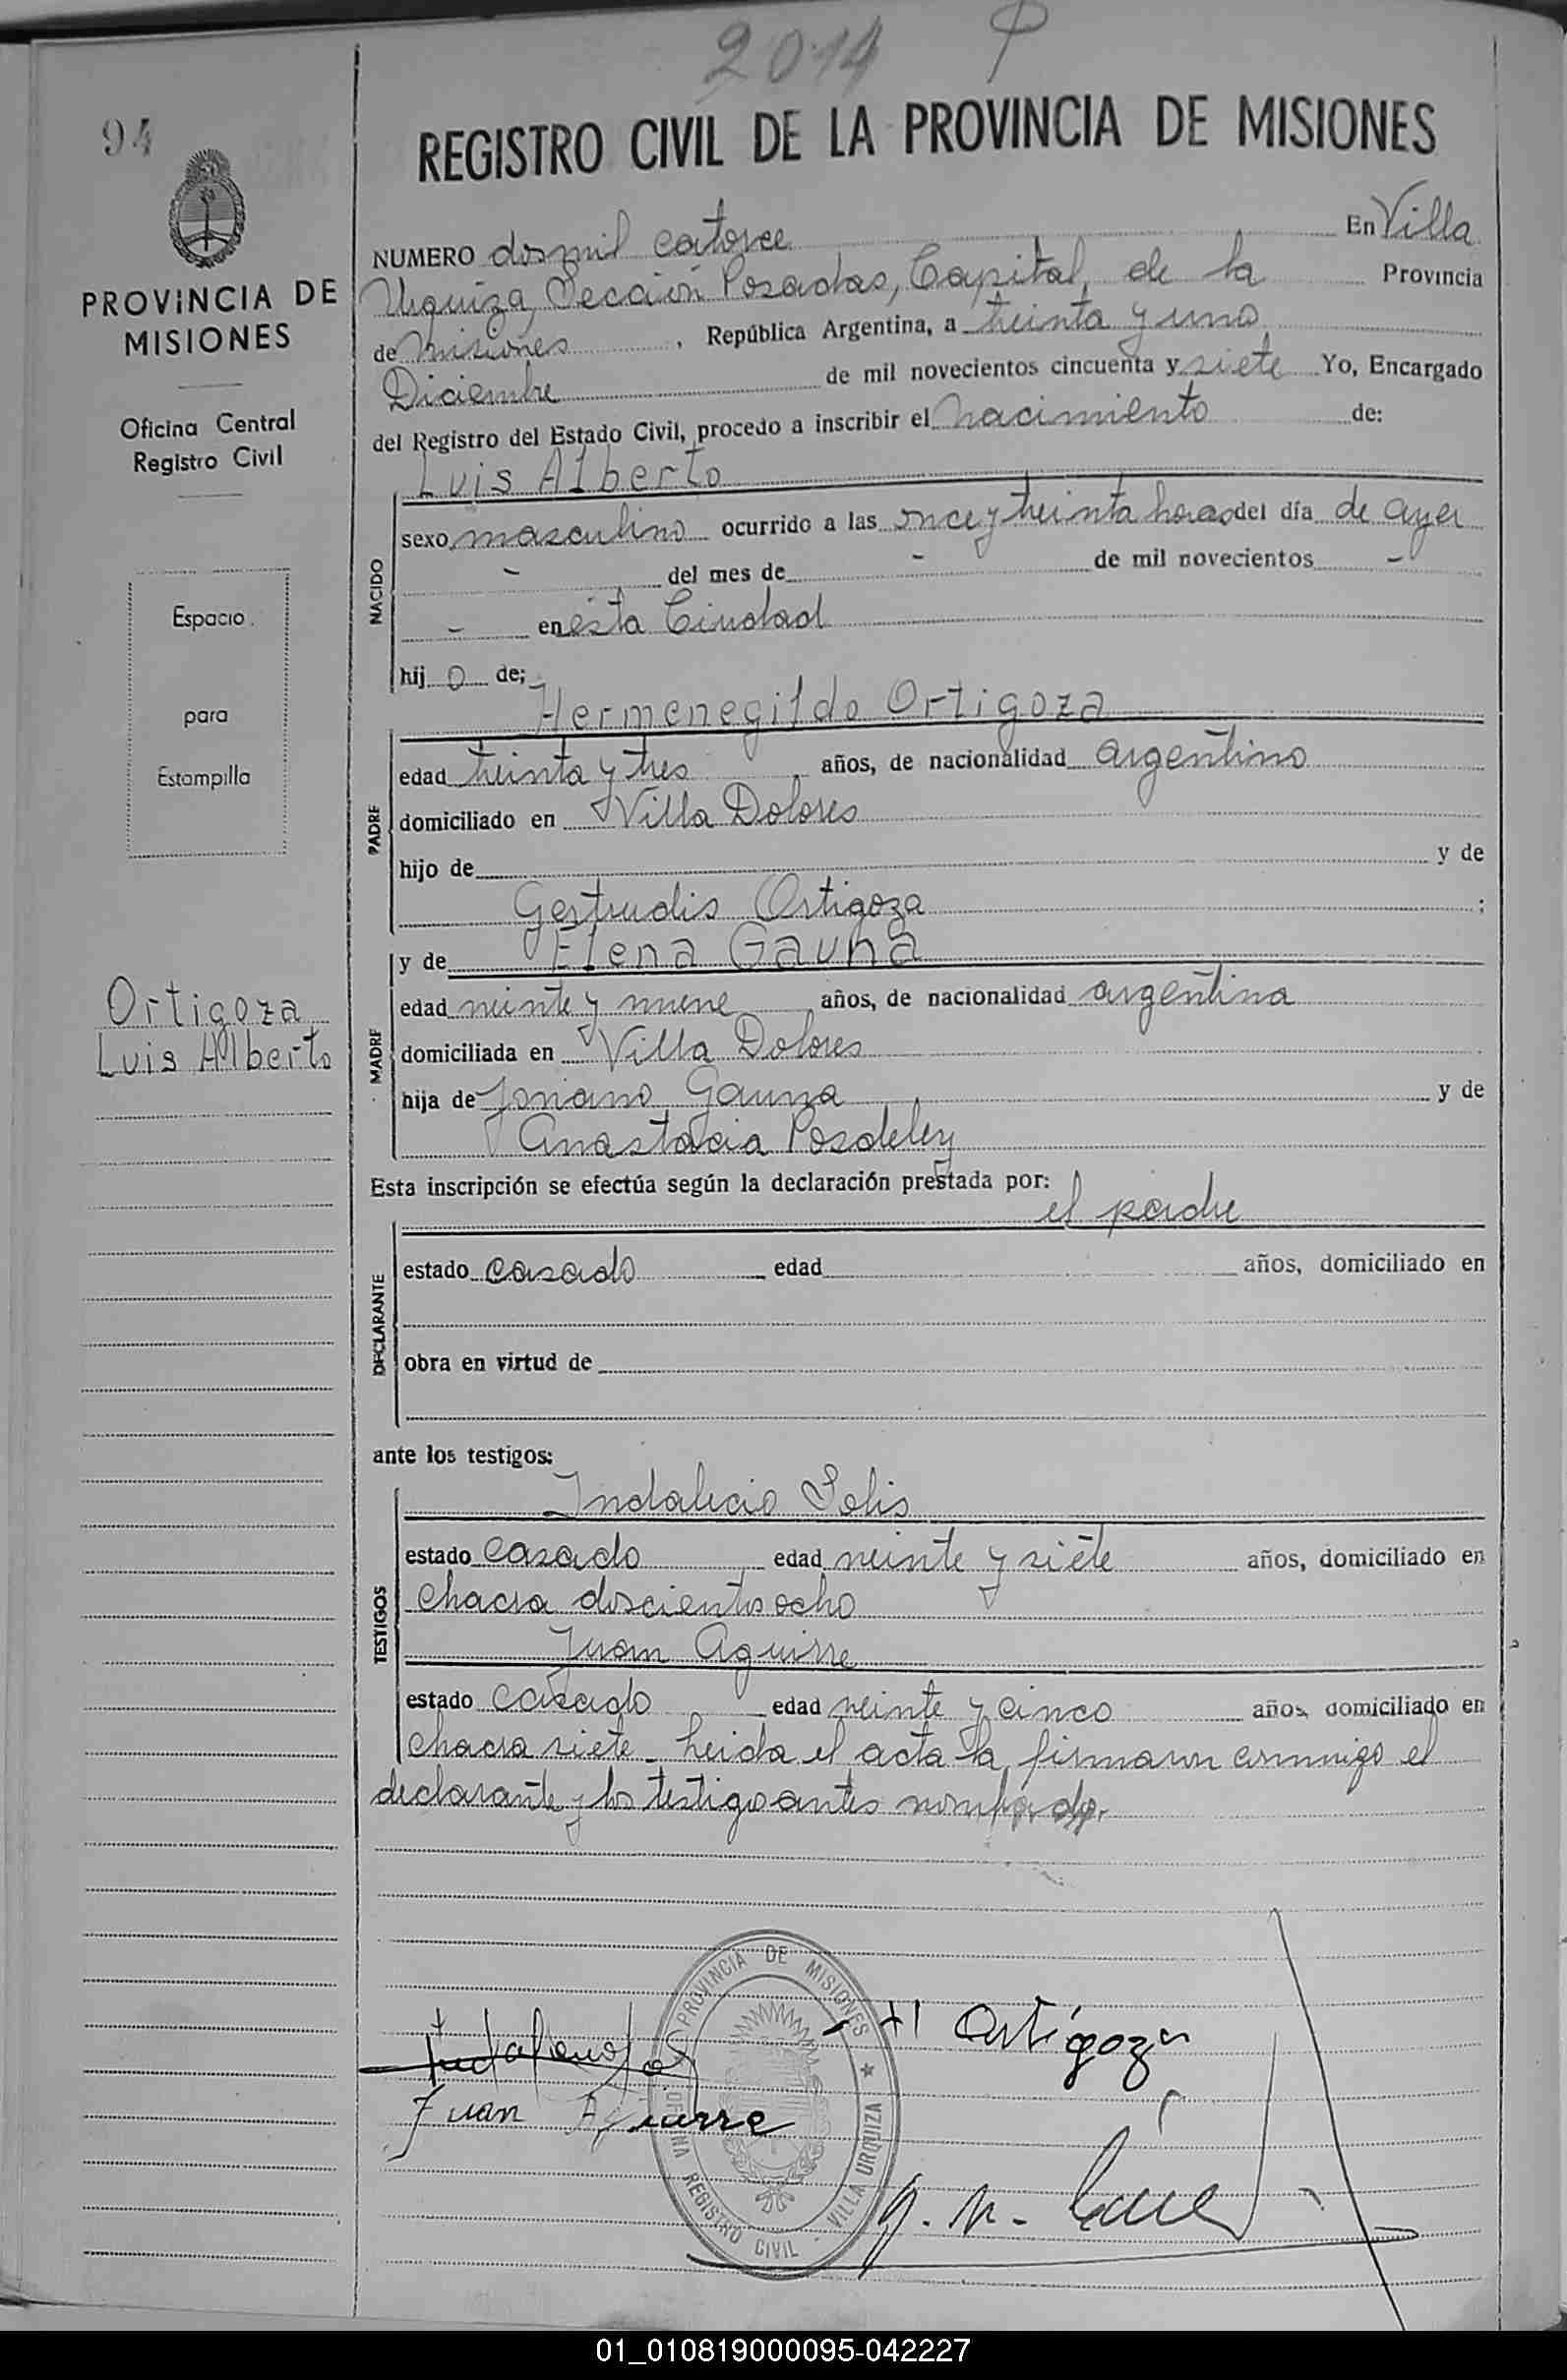 2014
94
REGISTRO CIVIL DE LA PROVINCIA DE MISIONES
PROVINCIA DE
MISIONES
Oficina Central
Registro Civil
Espacio
para
Estampilla
Ortigoza
Luis Alberto
NUMERO dos mil catorce En Villa
Urquiza, Sección Posadas, Capital, de la Provincia
de Misiones, República Argentina, a treinta y uno
Diciembre de mil novecientos cincuenta y siete Yo, Encargado
del Registro del Estado Civil, procedo a inscribir el nacimiento de:
Luis Alberto
NACIDO
sexo masculino ocurrido a las once y treinta horas del día de ayer
- del mes de - de mil novecientos -
- en esta Ciudad
hij o de;
Hermenegildo Ortigoza
PADRE
edad treinta y tres años, de nacionalidad argentino
domiciliado en Villa Dolores
hijo de y de
Gertrudis Ortigoza ;
y de Elena Gauna
MADRE
edad veinte y nueve años, de nacionalidad argentina
domiciliada en Villa Dolores
hija de Gauna y de
Anastacia
Esta inscripción se efectúa según la declaración prestada por:
el padre
DECLARANTE
estado casado edad años, domiciliado en
obra en virtud de
ante los testigos:
Indalecio Solis
TESTIGOS
estado casado edad veinte y siete años, domiciliado en
chacra doscientos ocho
Juan Aguirre
estado casado edad veinte y cinco años, domiciliado en
chacra siete. Leida el acta la firmaron conmigo el
declarante y los testigo antes nombrado.
PROVINCIA DE MISIONES
OFICINA REGISTRO CIVIL - VILLA URQUIZA
H Ortigoza
Juan Aguirre
01_010819000095-042227